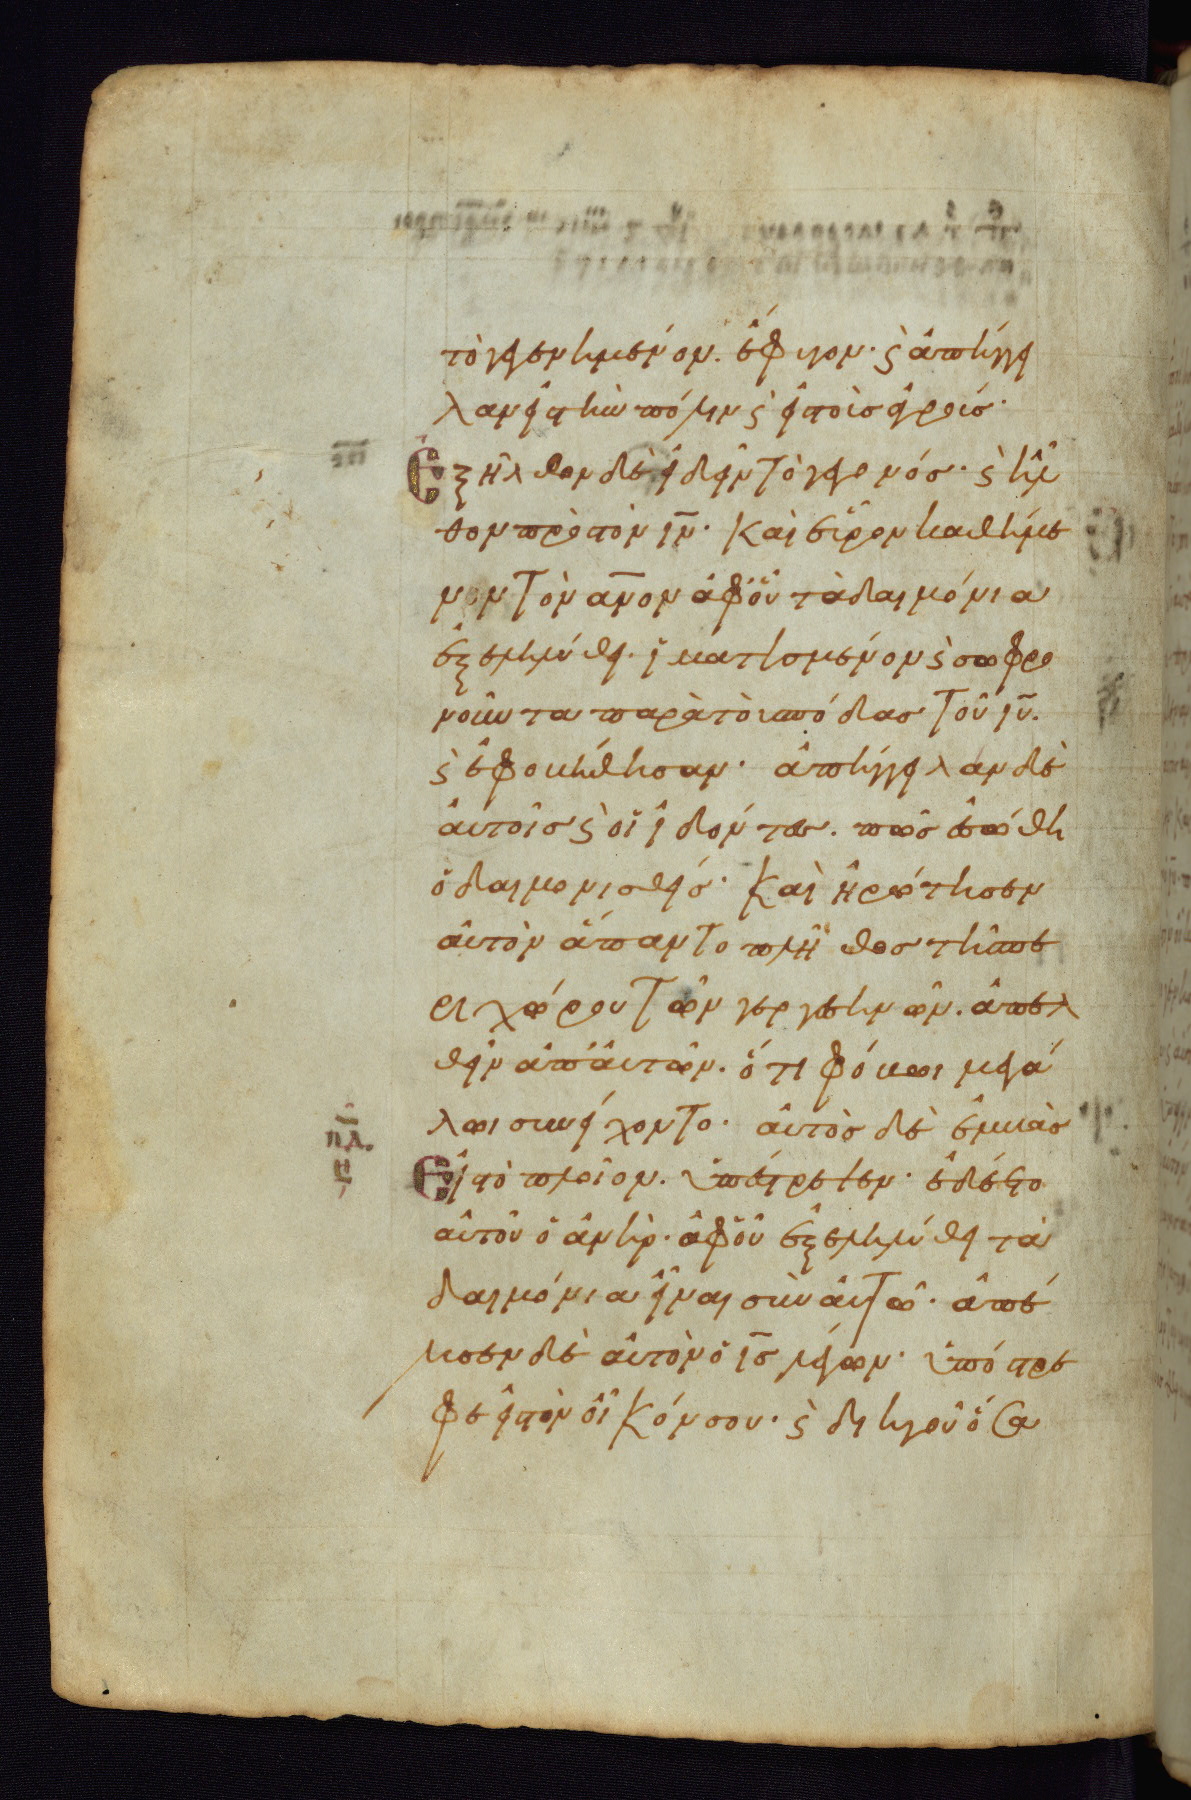 τὸ γεγενημένον. ἔφυγον· ϛ ἀπήγγει
λαν εἰς τὴν πόλιν ϛ εἰς τοὺς ἀγρούς·
Ἐξῆλθον δὲ ἰδεῖν τὸ γεγονός· ϛ ἦλ
θον πρὸς τὸν ιν̅· Καὶ εὗρον καθήμε
νον τὸν αν̅ον ἀφ' οὗ τὰ δαιμόνια
ἐξεληλύθει· ἱματισμένον ϛ σωφρο
νοῦντα παρὰ τοὺς πόδας τοῦ ιυ̅.
ϛ ἐφοβήθησαν· ἀπήγγειλαν δὲ
αὐτοῖς ϛ οἱ ἰδόντες. πῶς ἐσώθη
ὁ δαιμονισθείς· Καὶ ἠρώτησεν
αὐτὸν ἅπαν το πλῆθος τῆς πε
ριχώρου τῶν γεργεσηνῶν. ἀπελ
θεῖν ἀπ' αὐτῶν. ὅτι φόβωι μεγά
λωι συνείχοντο· αὐτὸς δὲ ἐμβὰς
Εἰς τὸ πλοῖον. ὑπέστρεψεν· ἐδέετο
αὐτοῦ ὁ ἀνὴρ· ἀφ' οὗ ἐξεληλύθει τὰ
δαιμόνια εἶναι σὺν αὐτῶ· ἀπέ
λυσεν δὲ αὐτὸν ὁ ις̅ λέγων· ὑπόστρε
φε εἰς τὸν οἶκόν σου· ϛ διηγοῦ ὅσα